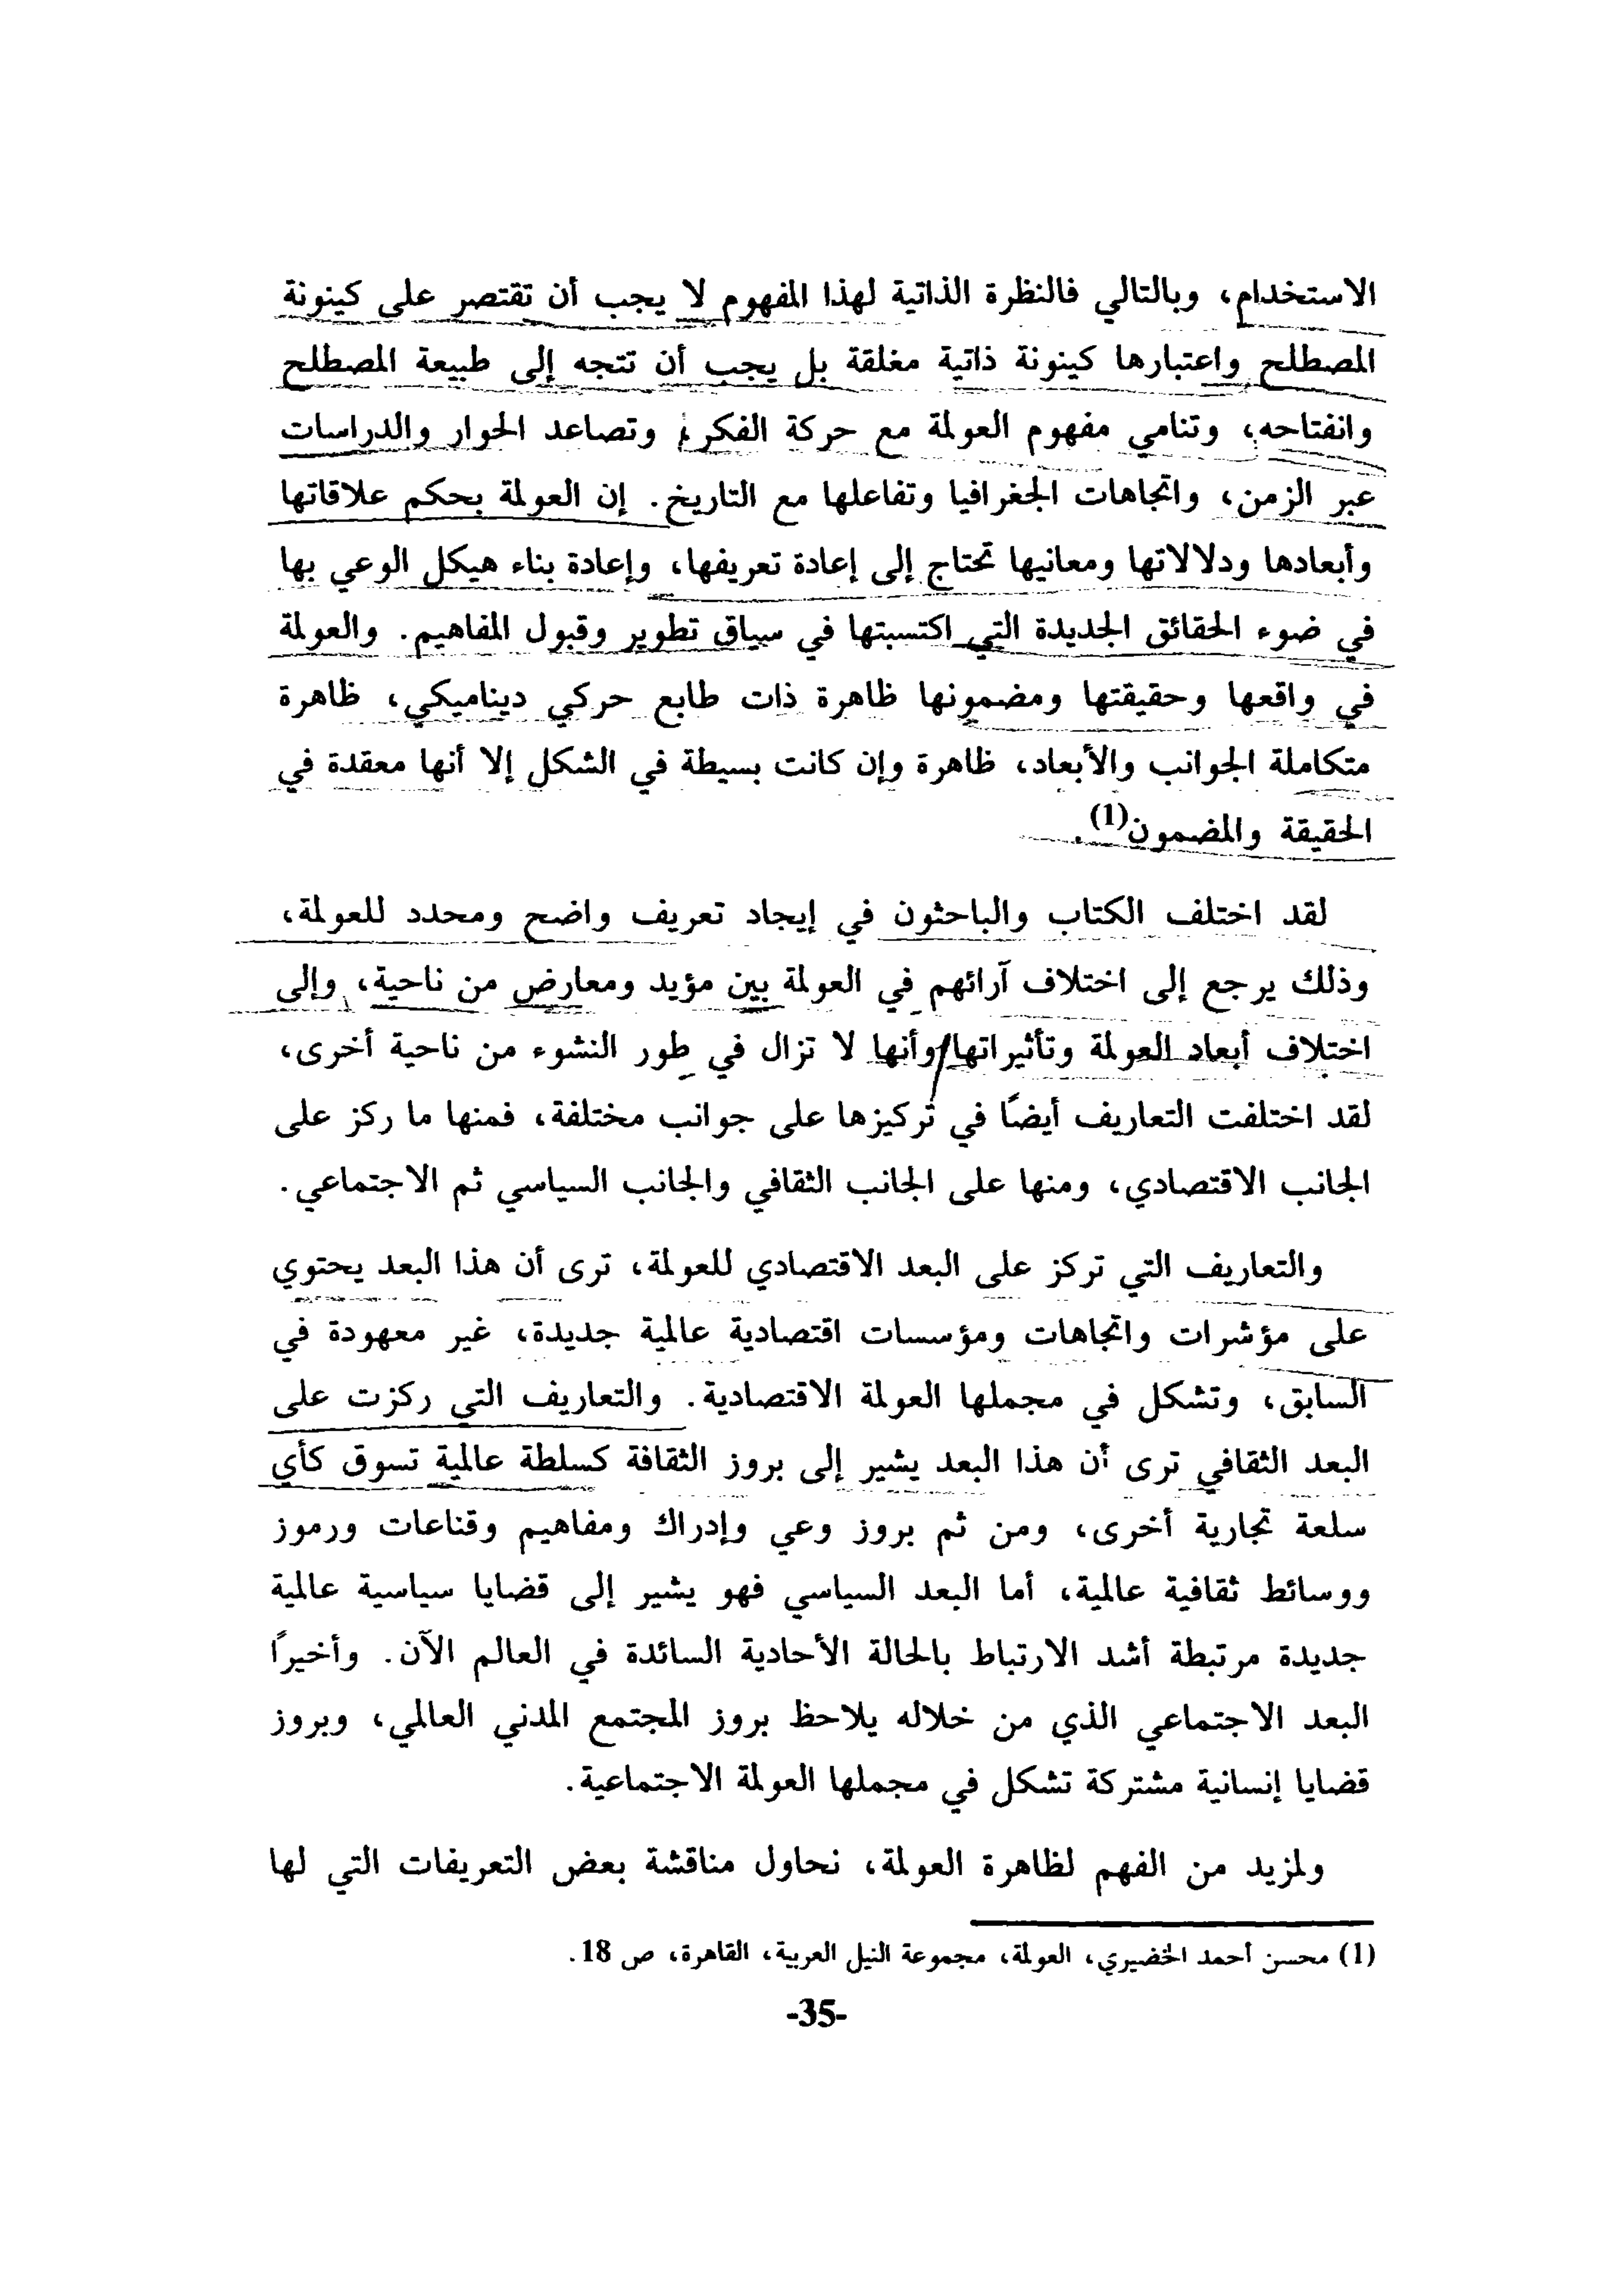 الاستخدام، وبالتالي فالنظرة الذاتية لهذا المفهوم لا يجب أن تقتصر على كينونة
المصطلح واعتبارها كينونة ذاتية مغلقة بل يجب أن تتجه إلى طبيعة المصطلح
وانفتاحه، وتنامي مفهوم العولمة مع حركة الفكر، وتصاعد الحوار والدراسات
عبر الزمن، واتجاهات الجغرافيا وتفاعلها مع التاريخ. إن العولمة بحكم علاقاتها
وأبعادها ودلالاتها ومعانيها تحتاج إلى إعادة تعريفها، وإعادة بناء هيكل الوعي بها
في ضوء الحقائق الجديدة التي اكتسبتها في سياق تطوير وقبول المفاهيم. والعولمة
في واقعها وحقيقتها ومضمونها ظاهرة ذات طابع حركي ديناميكي، ظاهرة
متكاملة الجوانب والأبعاد، ظاهرة وإن كانت بسيطة في الشكل إلا أنها معقدة في
الحقيقة والمضمون(1).
لقد اختلف الكتاب والباحثون في إيجاد تعريف واضح ومحدد للعولمة،
وذلك يرجع إلى اختلاف آرائهم في العولمة بين مؤيد ومعارض من ناحية، وإلى
اختلاف أبعاد العولمة وتأثيراتها وأنها لا تزال في طور النشوء من ناحية أخرى،
لقد اختلفت التعاريف أيضًا في تركيزها على جوانب مختلفة، فمنها ما ركز على
الجانب الاقتصادي، ومنها على الجانب الثقافي والجانب السياسي ثم الاجتماعي.
والتعاريف التي تركز على البعد الاقتصادي للعولمة، ترى أن هذا البعد يحتوي
على مؤشرات واتجاهات ومؤسسات اقتصادية عالمية جديدة، غير معهودة في
السابق، وتشكل في مجملها العولمة الاقتصادية. والتعاريف التي ركزت على
البعد الثقافي ترى أن هذا البعد يشير إلى بروز الثقافة كسلطة عالمية تسوق كأي
سلعة تجارية أخرى، ومن ثم بروز وعي وإدراك ومفاهيم وقناعات ورموز
ووسائط ثقافية عالمية، أما البعد السياسي فهو يشير إلى قضايا سياسية عالمية
جديدة مرتبطة أشد الارتباط بالحالة الأحادية السائدة في العالم الآن. وأخيرًا
البعد الاجتماعي الذي من خلاله يلاحظ بروز المجتمع المدني العالمي، وبروز
قضايا إنسانية مشتركة تشكل في مجملها العولمة الاجتماعية.
ولمزيد من الفهم لظاهرة العولمة، نحاول مناقشة بعض التعريفات التي لها
(1) محسن أحمد الخضيري، العولمة، مجموعة النيل العربية، القاهرة، ص 18.
-35-